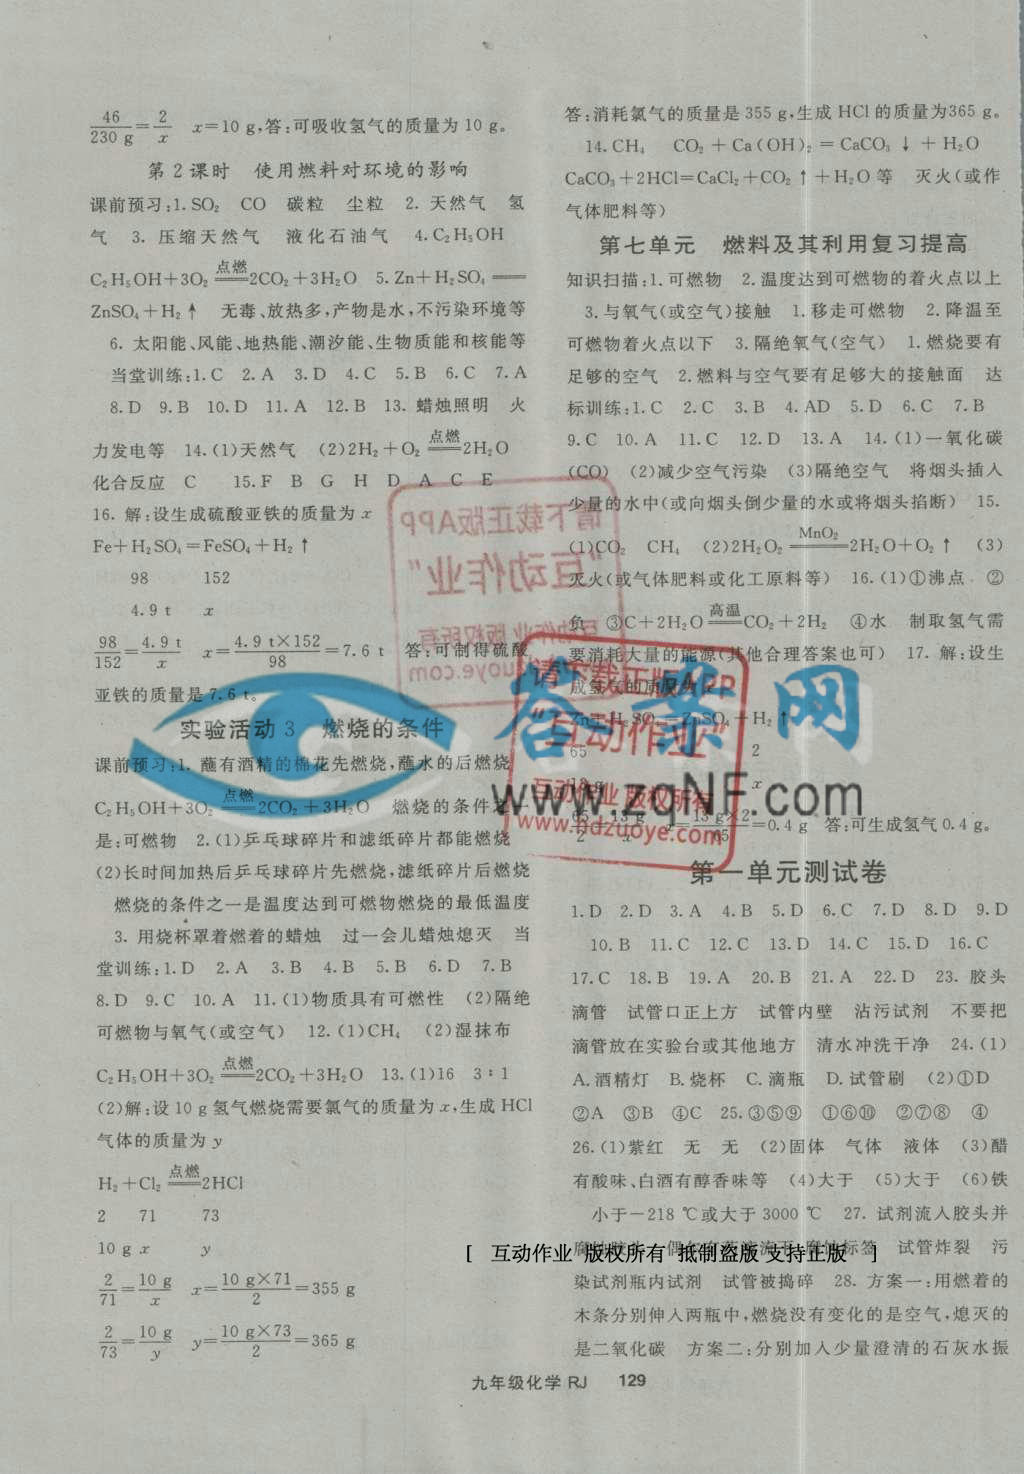 46/230 g=2/x x=10 g,答:可吸收氢气的质量为 10 g。
第 2 课时 使用燃料对环境的影响
课前预习:1. SO₂ CO 碳粒 尘粒 2. 天然气 氢
气 3. 压缩天然气 液化石油气 4. C₂H₅OH
C₂H₅OH+3O₂ 点燃══ 2CO₂+3H₂O 5. Zn+H₂SO₄══
ZnSO₄+H₂↑ 无毒、放热多,产物是水,不污染环境等
6. 太阳能、风能、地热能、潮汐能、生物质能和核能等
当堂训练:1. C 2. A 3. D 4. C 5. B 6. C 7. A
8. D 9. B 10. D 11. A 12. B 13. 蜡烛照明 火
力发电等 14. (1)天然气 (2)2H₂+O₂ 点燃══ 2H₂O
化合反应 C 15. F B G H D A C E
16. 解:设生成硫酸亚铁的质量为 x
Fe+H₂SO₄=FeSO₄+H₂↑
98 152
4.9 t x
98/152=4.9 t/x x=4.9 t×152/98=7.6 t 答:可制得硫酸
亚铁的质量是 7.6 t。
实验活动 3 燃烧的条件
课前预习:1. 蘸有酒精的棉花先燃烧,蘸水的后燃烧
C₂H₅OH+3O₂ 点燃══ 2CO₂+3H₂O 燃烧的条件之一
是:可燃物 2. (1)乒乓球碎片和滤纸碎片都能燃烧
(2)长时间加热后乒乓球碎片先燃烧,滤纸碎片后燃烧
燃烧的条件之一是温度达到可燃物燃烧的最低温度
3. 用烧杯罩着燃着的蜡烛 过一会儿蜡烛熄灭 当
堂训练:1. D 2. A 3. B 4. B 5. B 6. D 7. B
8. D 9. C 10. A 11. (1)物质具有可燃性 (2)隔绝
可燃物与氧气(或空气) 12. (1)CH₄ (2)湿抹布
C₂H₅OH+3O₂ 点燃══ 2CO₂+3H₂O 13. (1)16 3∶1
(2)解:设 10 g 氢气燃烧需要氯气的质量为 x,生成 HCl
气体的质量为 y
H₂+Cl₂ 点燃══ 2HCl
2 71 73
10 g x y
2/71=10 g/x x=10 g×71/2=355 g
2/73=10 g/y y=10 g×73/2=365 g
答:消耗氯气的质量是 355 g,生成 HCl 的质量为365 g。
14. CH₄ CO₂+Ca(OH)₂=CaCO₃↓+H₂O
CaCO₃+2HCl=CaCl₂+CO₂↑+H₂O 等 灭火(或作
气体肥料等)
第七单元 燃料及其利用复习提高
知识扫描:1. 可燃物 2. 温度达到可燃物的着火点以上
3. 与氧气(或空气)接触 1. 移走可燃物 2. 降温至
可燃物着火点以下 3. 隔绝氧气(空气) 1. 燃烧要有
足够的空气 2. 燃料与空气要有足够大的接触面 达
标训练:1. C 2. C 3. B 4. AD 5. D 6. C 7. B
9. C 10. A 11. C 12. D 13. A 14. (1)一氧化碳
(CO) (2)减少空气污染 (3)隔绝空气 将烟头插入
少量的水中(或向烟头倒少量的水或将烟头掐断) 15.
(1)CO₂ CH₄ (2)2H₂O₂ MnO₂══ 2H₂O+O₂↑ (3)
灭火(或气体肥料或化工原料等) 16. (1)①沸点 ②
负 ③C+2H₂O 高温══ CO₂+2H₂ ④水 制取氢气需
要消耗大量的能源(其他合理答案也可) 17. 解:设生
成氢气的质量为 x
Zn+H₂SO₄=ZnSO₄+H₂↑
65 2
13 g x
65/2=13 g/x x=13 g×2/65=0.4 g 答:可生成氢气 0.4 g。
第一单元测试卷
1. D 2. D 3. A 4. B 5. D 6. C 7. D 8. D 9. D
10. B 11. C 12. C 13. D 14. C 15. D 16. C
17. C 18. B 19. A 20. B 21. A 22. D 23. 胶头
滴管 试管口正上方 试管内壁 沾污试剂 不要把
滴管放在实验台或其他地方 清水冲洗干净 24. (1)
A. 酒精灯 B. 烧杯 C. 滴瓶 D. 试管刷 (2)①D
②A ③B ④C 25. ③⑤⑨ ①⑥⑩ ②⑦⑧ ④
26. (1)紫红 无 无 (2)固体 气体 液体 (3)醋
有酸味、白酒有醇香味等 (4)大于 (5)大于 (6)铁
小于-218 ℃或大于 3000 ℃ 27. 试剂流入胶头并
腐蚀胶头 标签 试管炸裂 污
染试剂瓶内试剂 试管被捣碎 28. 方案一:用燃着的
木条分别伸入两瓶中,燃烧没有变化的是空气,熄灭的
是二氧化碳 方案二:分别加入少量澄清的石灰水振
九年级化学 RJ 129
请下载正版APP
"互动作业"
互动作业 版权所有
请下载正版APP
"互动作业"
互动作业 版权所有
www.hdzuoye.com
答案网
www.zqNF.com
[ 互动作业 版权所有 抵制盗版 支持正版 ]